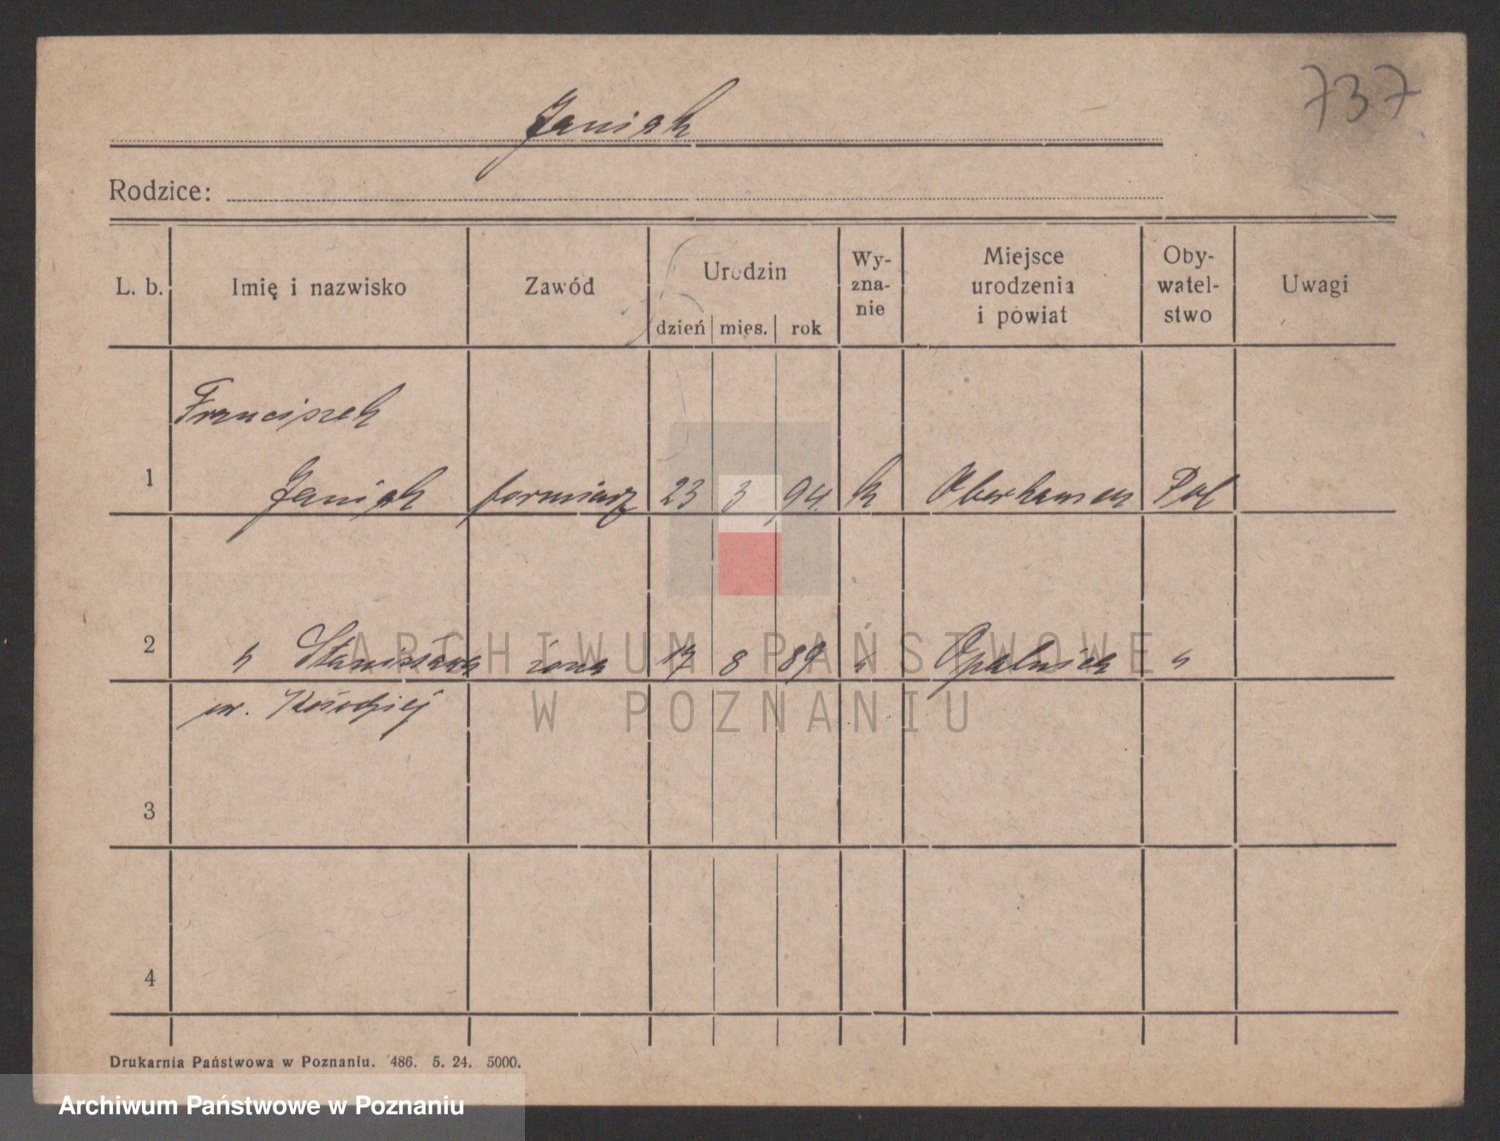 737
Janiak
Rodzice:
L. b.
Imię i nazwisko
Zawód
Urodzin
dzień mies. rok
Wy-
zna-
nie
Miejsce
urodzenia
i powiat
Oby-
watel-
stwo
Uwagi
Franciszek
1 Janiak formiarz 23 3 94. k Oberhausen Pol
2 " Stanisława żona 17 8 89 " Opalenica "
ur.
3
4
ARCHIWUM PAŃSTWOWE
W POZNANIU
Drukarnia Państwowa w Poznaniu. 486. 5. 24. 5000.
Archiwum Państwowe w Poznaniu